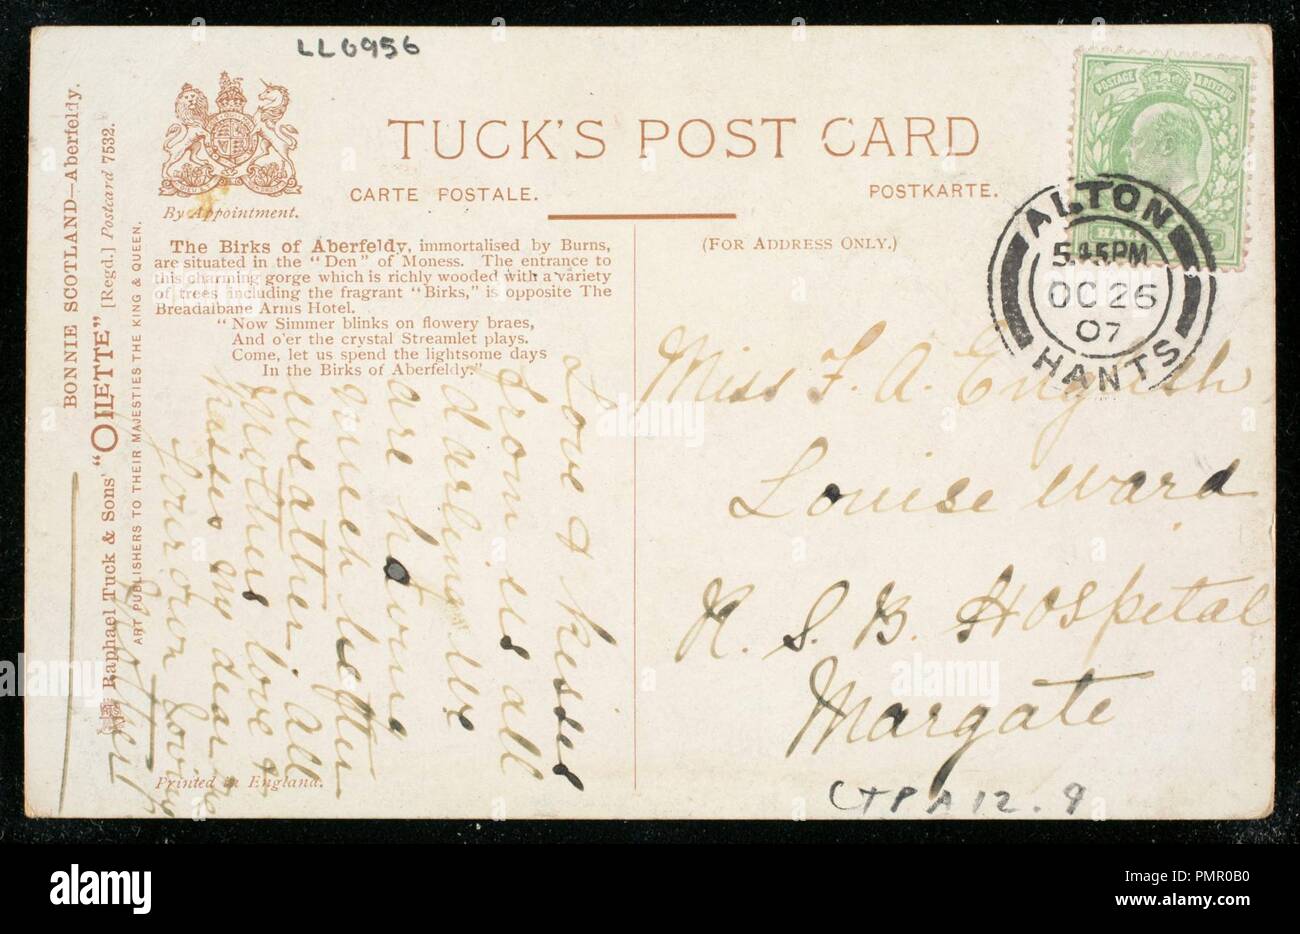 LL6956
TUCK'S POST CARD
CARTE POSTALE.
POSTKARTE.
By Appointment.
(FOR ADDRESS ONLY.)
BONNIE SCOTLAND—Aberfeldy.
Raphael Tuck & Sons' "OILETTE" [Regd.] Postcard 7532.
ART PUBLISHERS TO THEIR MAJESTIES THE KING & QUEEN.
The Birks of Aberfeldy, immortalised by Burns,
are situated in the "Den" of Moness. The entrance to
this charming gorge which is richly wooded with a variety
of trees including the fragrant "Birks," is opposite The
Breadalbane Arms Hotel.
"Now Simmer blinks on flowery braes,
And o'er the crystal Streamlet plays.
Come, let us spend the lightsome days
In the Birks of Aberfeldy."
Love & kisses
from us all
darling we
are having
much better
weather, all
Mothers love &
kisses my dear
Your own loving
Printed in England.
POSTAGE & REVENUE
ALTON
5.45PM
OC 26
07
HANTS
Miss F. A. English
Louise Ward
R. S. B. Hospital
Margate
CTPA12.9
alamy
Image ID: PMR0B0
www.alamy.com